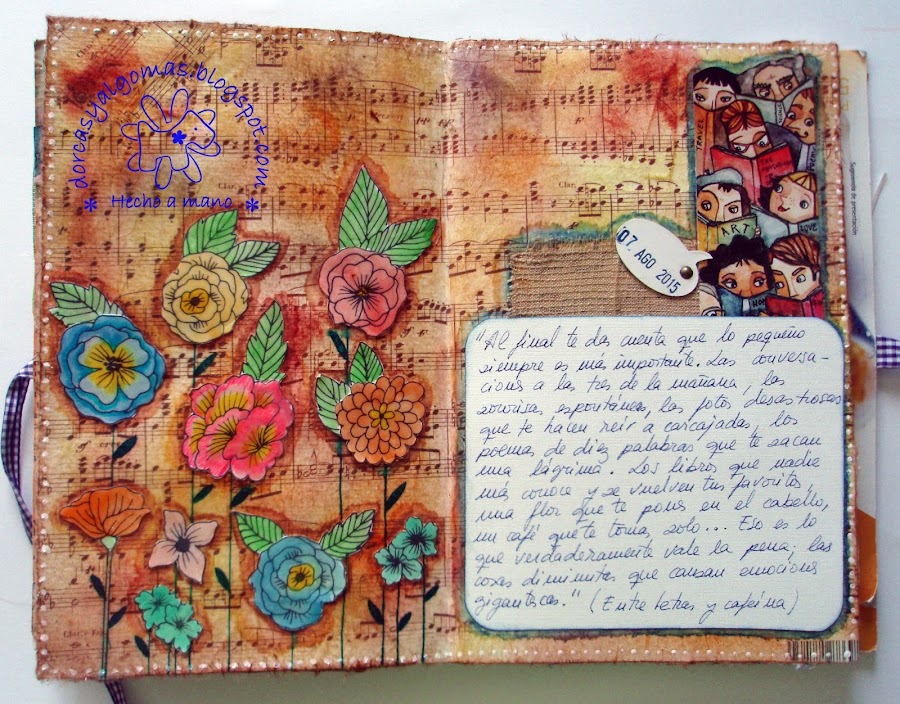 dorcasyalgomas.blogspot.com
* Hecho a mano *
TRAVEL
ART
LOVE
07. AGO 2015
"Al final te das cuenta que lo pequeño
siempre es más importante. Las conversa-
ciones a las tres de la mañana, las
sonrisas espontáneas, las fotos desastrosas
que te hacen reir a carcajadas, los
poemas de diez palabras que te sacan
una lágrima. Los libros que nadie
más conoce y se vuelven tus favoritos,
una flor que te pones en el cabello,
un café que te tomas solo... Eso es lo
que verdaderamente vale la pena; las
cosas diminutas que causan emociones
gigantescas." (Entre letras y cafeína)